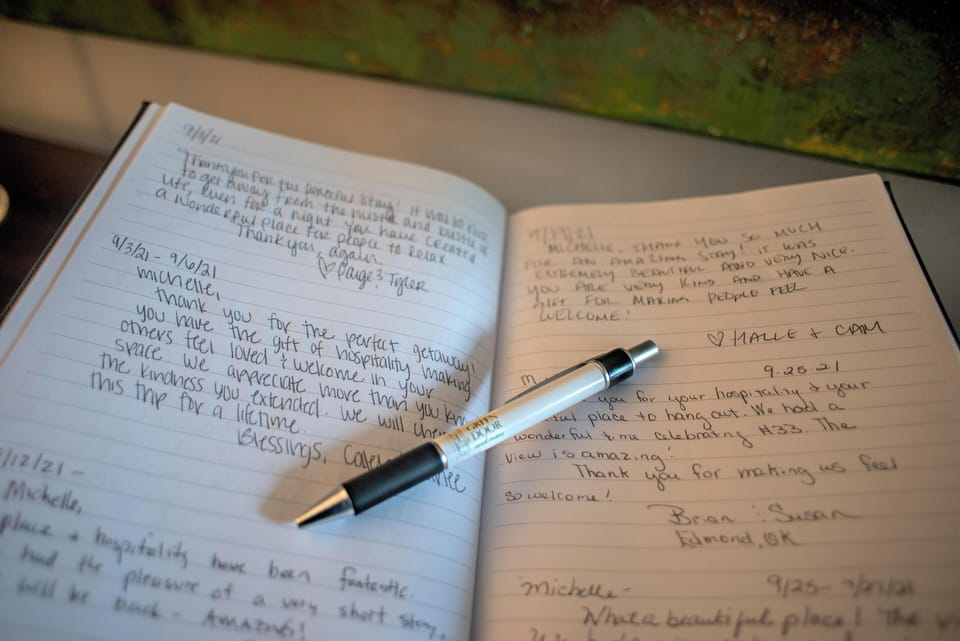 Thank you for the peaceful stay! it was so nice
to get away from the hustle and bustle of
life, even for a night you have created
a wonderful place for people to relax
Thank you, again
♡ Paige & Tyler
9/3/21 - 9/6/21
Michelle,
thank you for the perfect getaway!
you have the gift of hospitality making
others feel loved & welcome in your
space. we appreciate more than you know
the kindness you extended. we will
this trip for a lifetime.
Blessings,
/12/21 -
Michelle,
place & hospitality have been fantastic.
had the pleasure of a very short stay,
will be back - AMAZING!
GREEN
DOOR
MICHELLE, THANK YOU SO MUCH
FOR AN AMAZING STAY! IT WAS
EXTREMELY BEAUTIFUL AND VERY NICE.
YOU ARE VERY KIND AND HAVE A
GIFT FOR MAKING PEOPLE FEEL
WELCOME!
♡ HALLE + CAM
9.25.21
you for your hospitality & your
place to hang out. We had a
wonderful time celebrating #33. The
view is amazing!
Thank you for making us feel
so welcome!
Brian & Susan
Edmond, OK
Michelle - 9/25 - 9/27/21
What a beautiful place! The